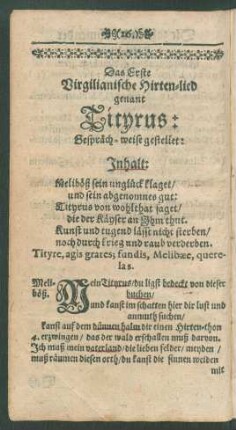 Das Erste
Virgilianische Hirten-lied
genant
Tityrus:
Gespräch-weise gestellet:
Inhalt:
Meliböß sein unglück klaget/
und sein abgenomnes gut:
Tityrus von wohlthat saget/
die der Käyser an Ihm thut.
Kunst und tugend läst nicht sterben/
noch durch krieg und raub verderben.
Tityre, agis grates; fundis, Melibæe, quere-
las.
Meli- MEin Tityrus/ du ligst bedeckt von dieser
böß. buchen/
und kanst im schatten hier dir lust und
anmuth suchen/
kanst auf dem dünnen halm dir einen Hirten-thon
erzwingen/ das der wald erschallen muß darvon.
Ich muß mein vaterland/ die lieben felder/ meyden/
muß räumen diesen orth/ du kanst die sinnen weiden
mit